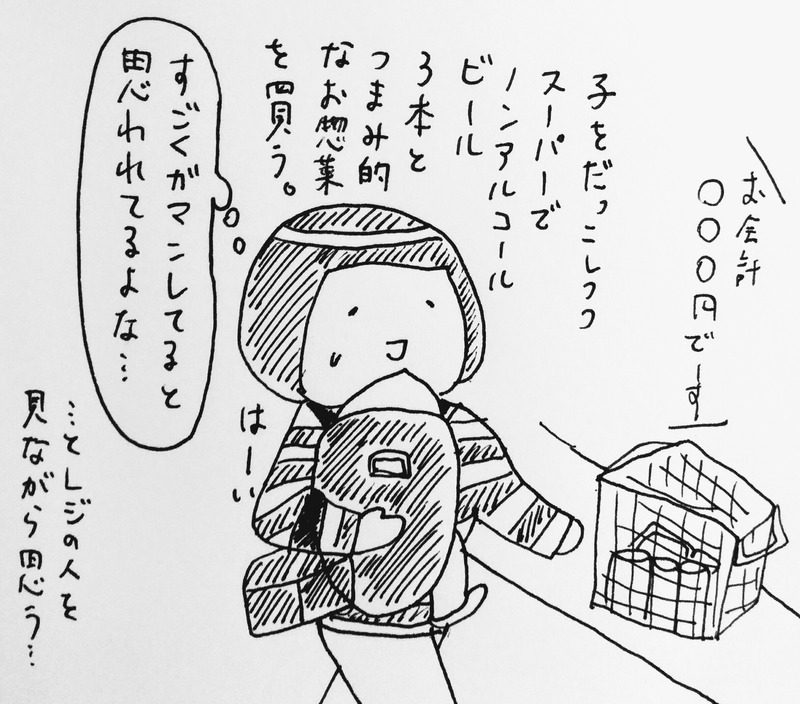 お会計
〇〇〇円でーす
子をだっこしつつ
スーパーで
ノンアルコール
ビール
3本と
つまみ的
なお惣菜
を買う。
すごくガマンしてると
思われてるよな…
はーい
…とレジの人を
見ながら思う…